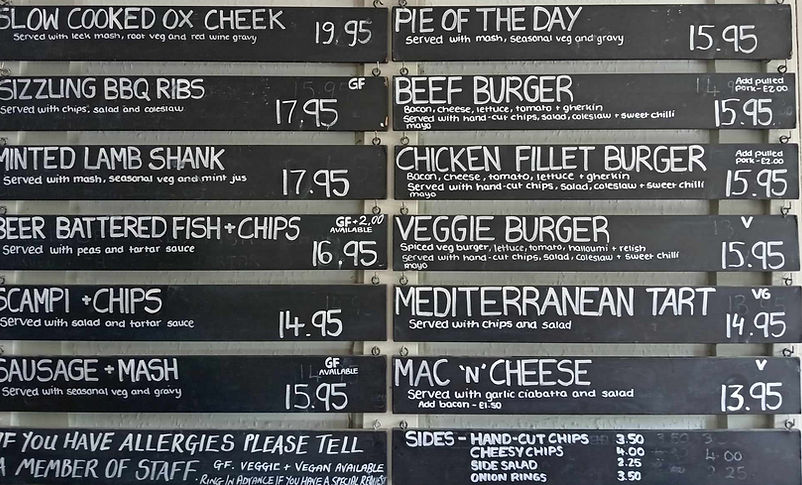 SLOW COOKED OX CHEEK 19.95
Served with leek mash, root veg and red wine gravy
SIZZLING BBQ RIBS GF
Served with chips, salad and coleslaw 17.95
MINTED LAMB SHANK
Served with mash, seasonal veg and mint jus 17.95
BEER BATTERED FISH + CHIPS GF + 2.00
AVAILABLE
Served with peas and tartar sauce 16.95
SCAMPI + CHIPS
Served with salad and tartar sauce 14.95
SAUSAGE + MASH GF
AVAILABLE
Served with seasonal veg and gravy 15.95
IF YOU HAVE ALLERGIES PLEASE TELL
A MEMBER OF STAFF. GF. VEGGIE + VEGAN AVAILABLE
· RING IN ADVANCE IF YOU HAVE A SPECIAL REQUEST
PIE OF THE DAY
Served with mash, seasonal veg and gravy 15.95
BEEF BURGER Add pulled
Pork - £2.00
Bacon, cheese, lettuce, tomato + gherkin
Served with hand-cut chips, salad, coleslaw + sweet chilli
mayo 15.95
CHICKEN FILLET BURGER Add pulled
pork - £2.00
Bacon, cheese, tomato, lettuce + gherkin
Served with hand-cut chips, salad, coleslaw + sweet chilli
mayo 15.95
VEGGIE BURGER V
Spiced veg burger, lettuce, tomato, halloumi + relish
Served with hand-cut chips, salad, coleslaw + sweet chilli
mayo 15.95
MEDITERRANEAN TART VG
Served with chips and salad 14.95
MAC 'N' CHEESE V
Served with garlic ciabatta and salad
Add bacon - £1.50 13.95
SIDES - HAND-CUT CHIPS 3.50
CHEESY CHIPS 4.00
SIDE SALAD 2.25
ONION RINGS 3.50